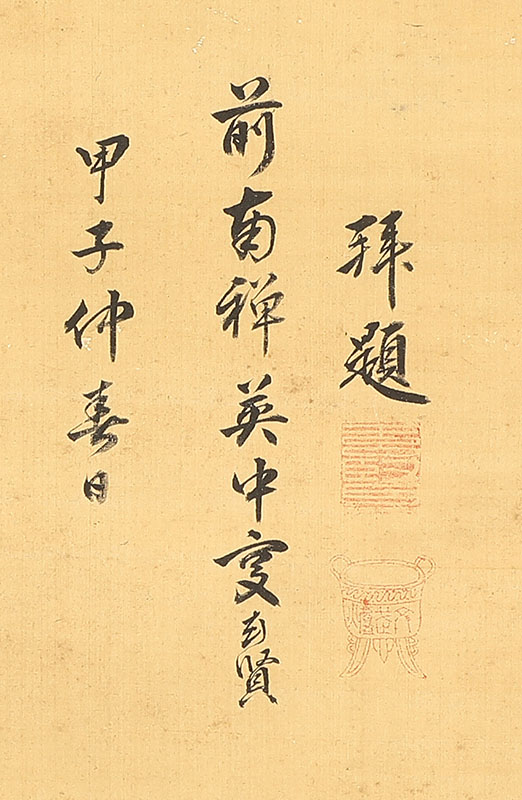 拜題
前南禅英中叟玄賢
甲子仲春日